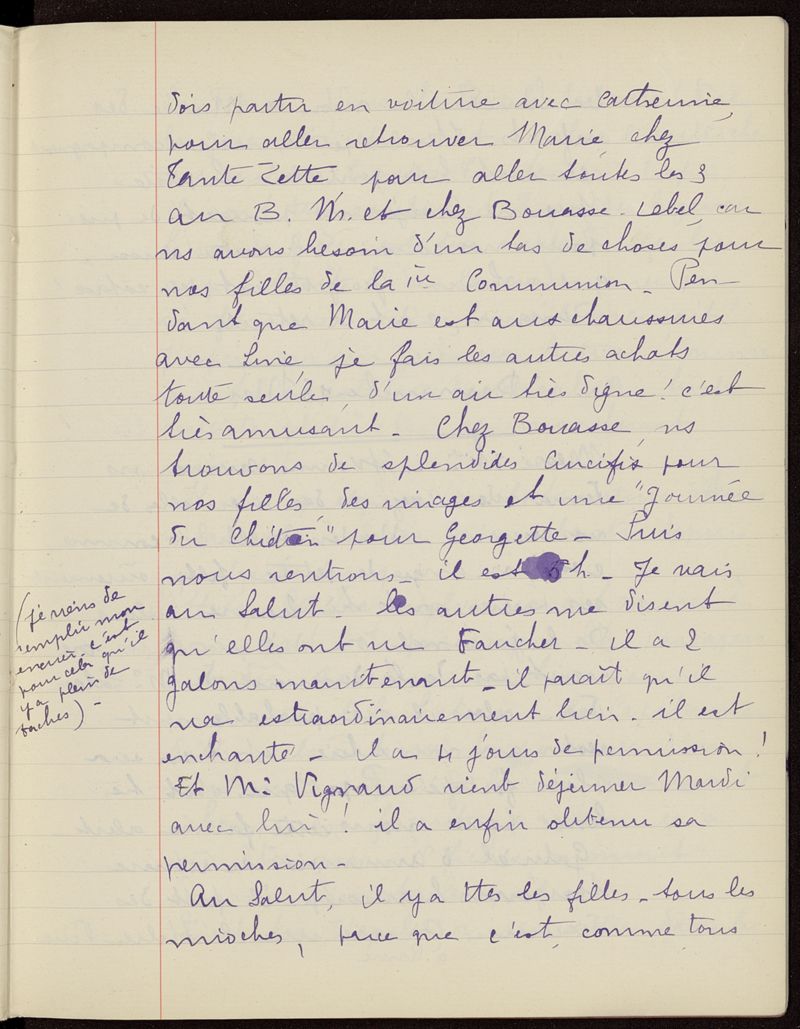 dois partir en voiture avec Catherine,
pour aller retrouver Marie chez
Tante Zette pour aller toutes les 3
au B. M. et chez Bouasse-Lebel car
ns avons besoin d'un tas de choses pour
nos filles de la 1re Communion - Pen-
dant que Marie est aux chaussures
avec je fais les autres achats
toute seule, d'un air très digne ! c'est
très amusant - Chez Bouasse, ns
trouvons de splendides Crucifix pour
nos filles, des images et une "Journée
du Chrétien" pour Georgette - Puis
nous rentrons - il est 5h - Je vais
au Salut - les autres me disent
qu'elles ont vu Faucher - il a 2
galons maintenant - il paraît qu'il
va extraordinairement bien - il est
enchanté - il a 4 jours de permission !
Et Mr Vignaud vient déjeuner Mardi
avec lui ! il a enfin obtenu sa
permission -
Au Salut, il y a ttes les filles - tous les
mioches, parce que c'est, comme tous
(je viens de
remplir mon
encrier, c'est
pour cela qu'il
y a plein de
taches) -